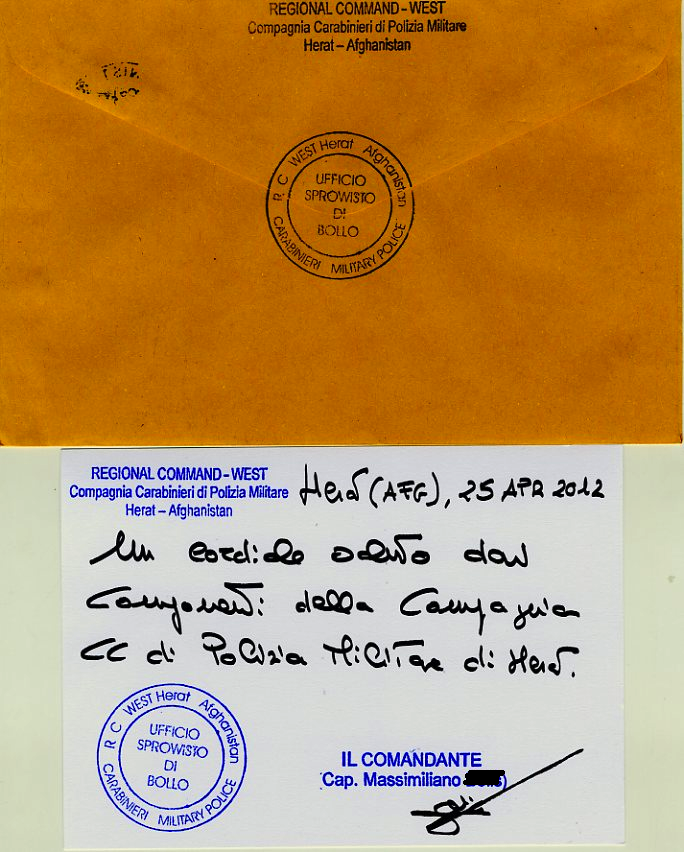 REGIONAL COMMAND - WEST
Compagnia Carabinieri di Polizia Militare
Herat – Afghanistan
R C WEST Herat Afghanistan
UFFICIO
SPROVVISTO
DI
BOLLO
CARABINIERI MILITARY POLICE
REGIONAL COMMAND - WEST
Compagnia Carabinieri di Polizia Militare
Herat – Afghanistan
Herat (AFG), 25 APR 2012
Un cordiale saluto dai
Componenti della Compagnia
CC di Polizia Militare di Herat.
R C WEST Herat Afghanistan
UFFICIO
SPROVVISTO
DI
BOLLO
CARABINIERI MILITARY POLICE
IL COMANDANTE
Cap. Massimiliano